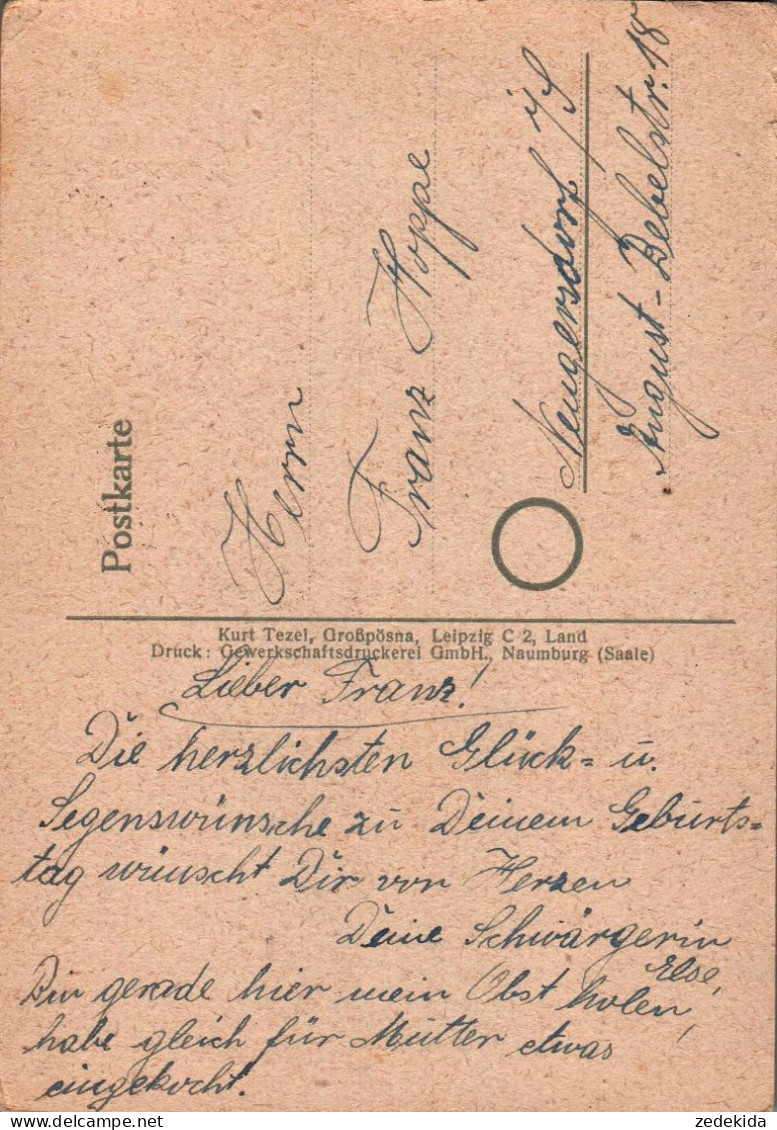 Postkarte
Herrn
Franz Hoppe
Neugersdorf i/S
August-Bebelstr. 18
Kurt Tezel, Großpösna, Leipzig C 2, Land
Druck: Gewerkschaftsdruckerei GmbH., Naumburg (Saale)
Lieber Franz!
Die herzlichsten Glück= u.
Segenswünsche zu Deinem Geburts=
tag wünscht Dir von Herzen
Deine Schwärgerin
Else,
Bin gerade hier mein Obst holen,
habe gleich für Mutter etwas
eingekocht.
zedekida